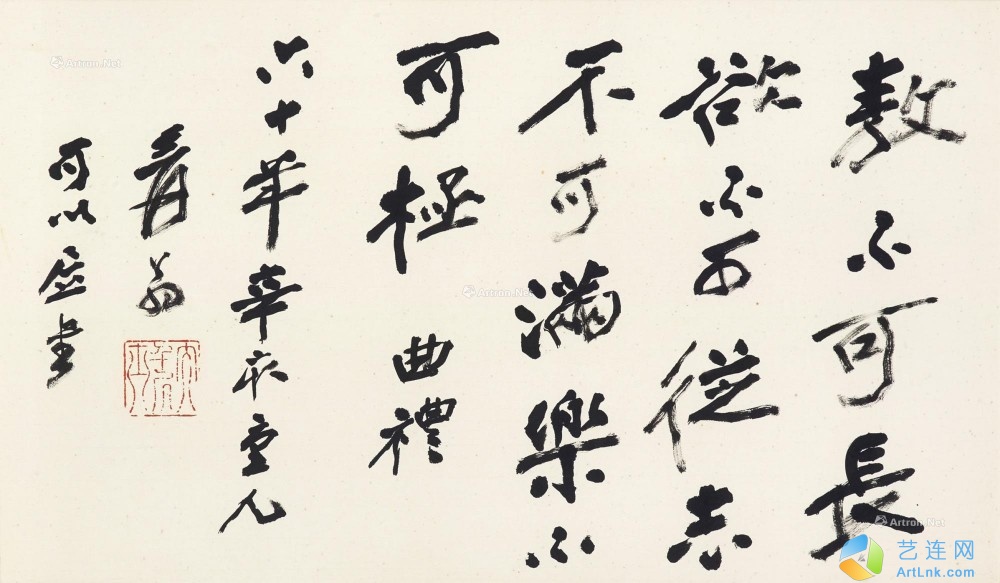 敖不可長
欲不可從志
不可滿樂不
可極 曲禮
六十年辛亥重九
爰翁
可以居書
Artron.Net
Artron.Net
Artron.Net
艺连网
ArtLnk.com